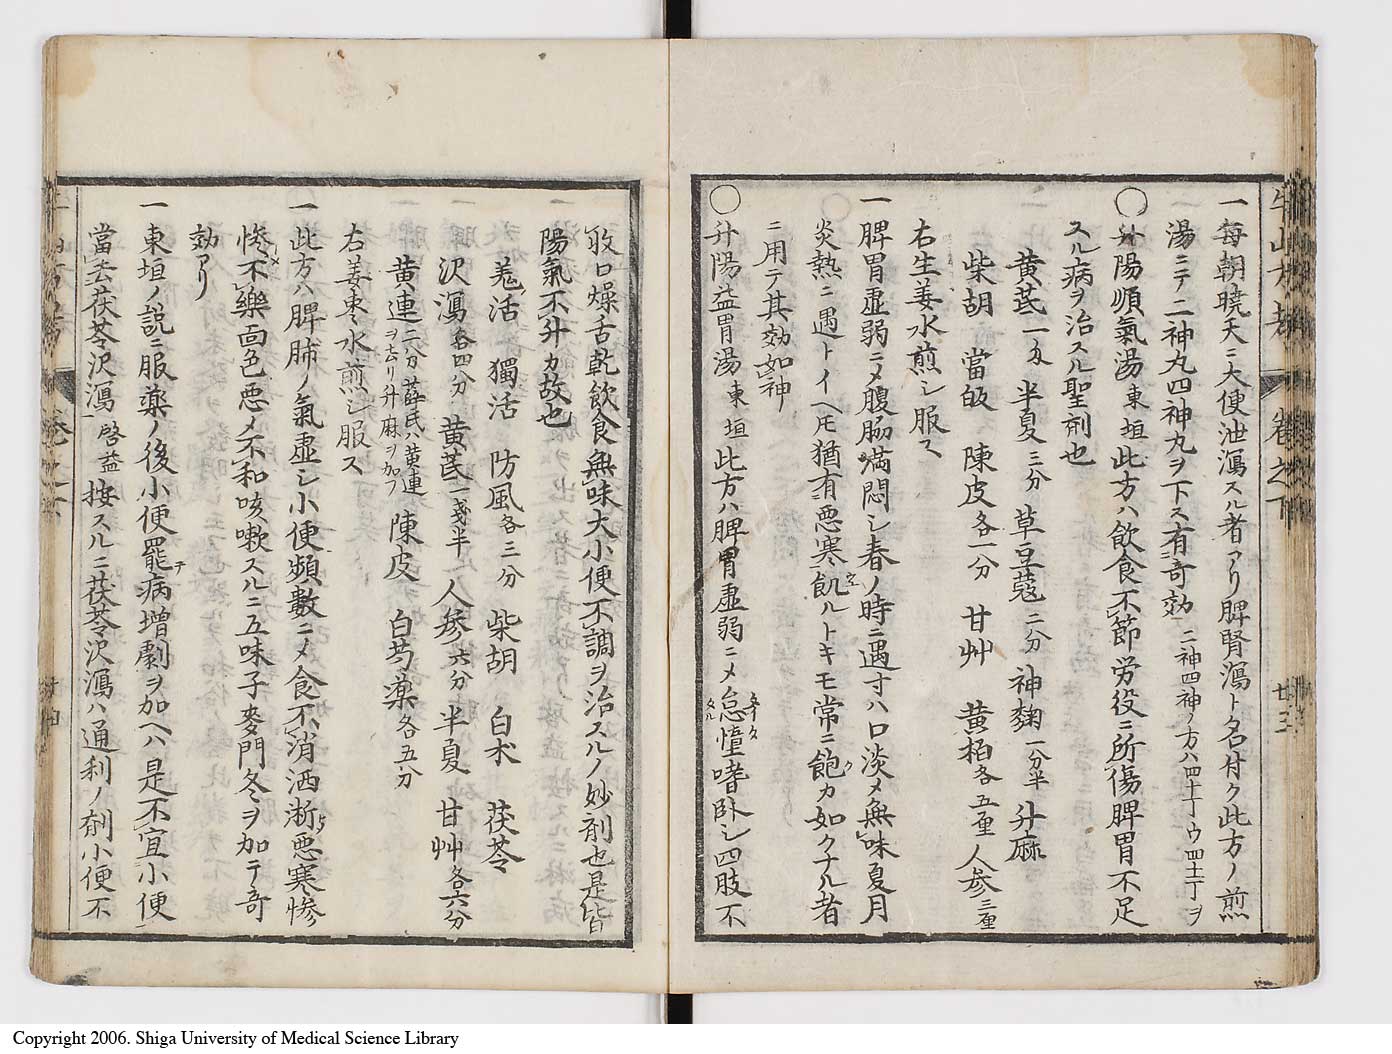 一 每朝曉天ニ大便泄瀉スル者アリ脾腎瀉ト名付ク此方ノ煎
湯ニテ二神丸四神丸ヲ下ス有奇効 二神四神ノ方ハ四十丁ウ四十一丁ヲ
○升陽順氣湯 東垣 此方ハ飲食不節労役ニ所傷脾胃不足
スル病ヲ治スル聖剤也
黄芪一匁 半夏三分 草豆蔻二分 神麹一分半 升麻
柴胡 當皈 陳皮各一分 甘艸 黄栢各五厘 人参三厘
右生姜水煎シ服ス
一 脾胃虚弱ニメ腹脇満悶シ春ノ時ニ遇寸ハ口淡メ無味夏月
炎熱ニ遇トイヘ𪜈猶有悪寒飢ルトキモ常ニ飽カ如クナル者
ニ用テ其効如神
○升陽益胃湯 東垣 此方ハ脾胃虚弱ニメ怠憧嗜卧シ四肢不
收口燥舌乾飲食無味大小便不調ヲ治スルノ妙剤也是皆
陽氣不升カ故也
羗活 獨活 防風各三分 柴胡 白朮 茯苓
沢瀉各四分 黄芪一戔半 人参六分 半夏 甘艸各六分
黄連二分薛氏ハ黄連ヲ去リ升麻ヲ加フ 陳皮 白芍薬各五分
右姜枣水煎シ服ス
一 此方ハ脾肺ノ氣虚シ小便頻數ニメ食不消洒淅悪寒惨
惨不樂面色悪メ不和咳嗽スルニ五味子麥門冬ヲ加テ奇
効アリ
一 東垣ノ説ニ服藥ノ後小便罷テ病增劇ヲ加ヘハ是不宜小便
當去茯苓沢瀉 啓益按スルニ茯苓沢瀉ハ通利ノ剤小便不
牛山方考 卷之下 廿三
Copyright 2006. Shiga University of Medical Science Library